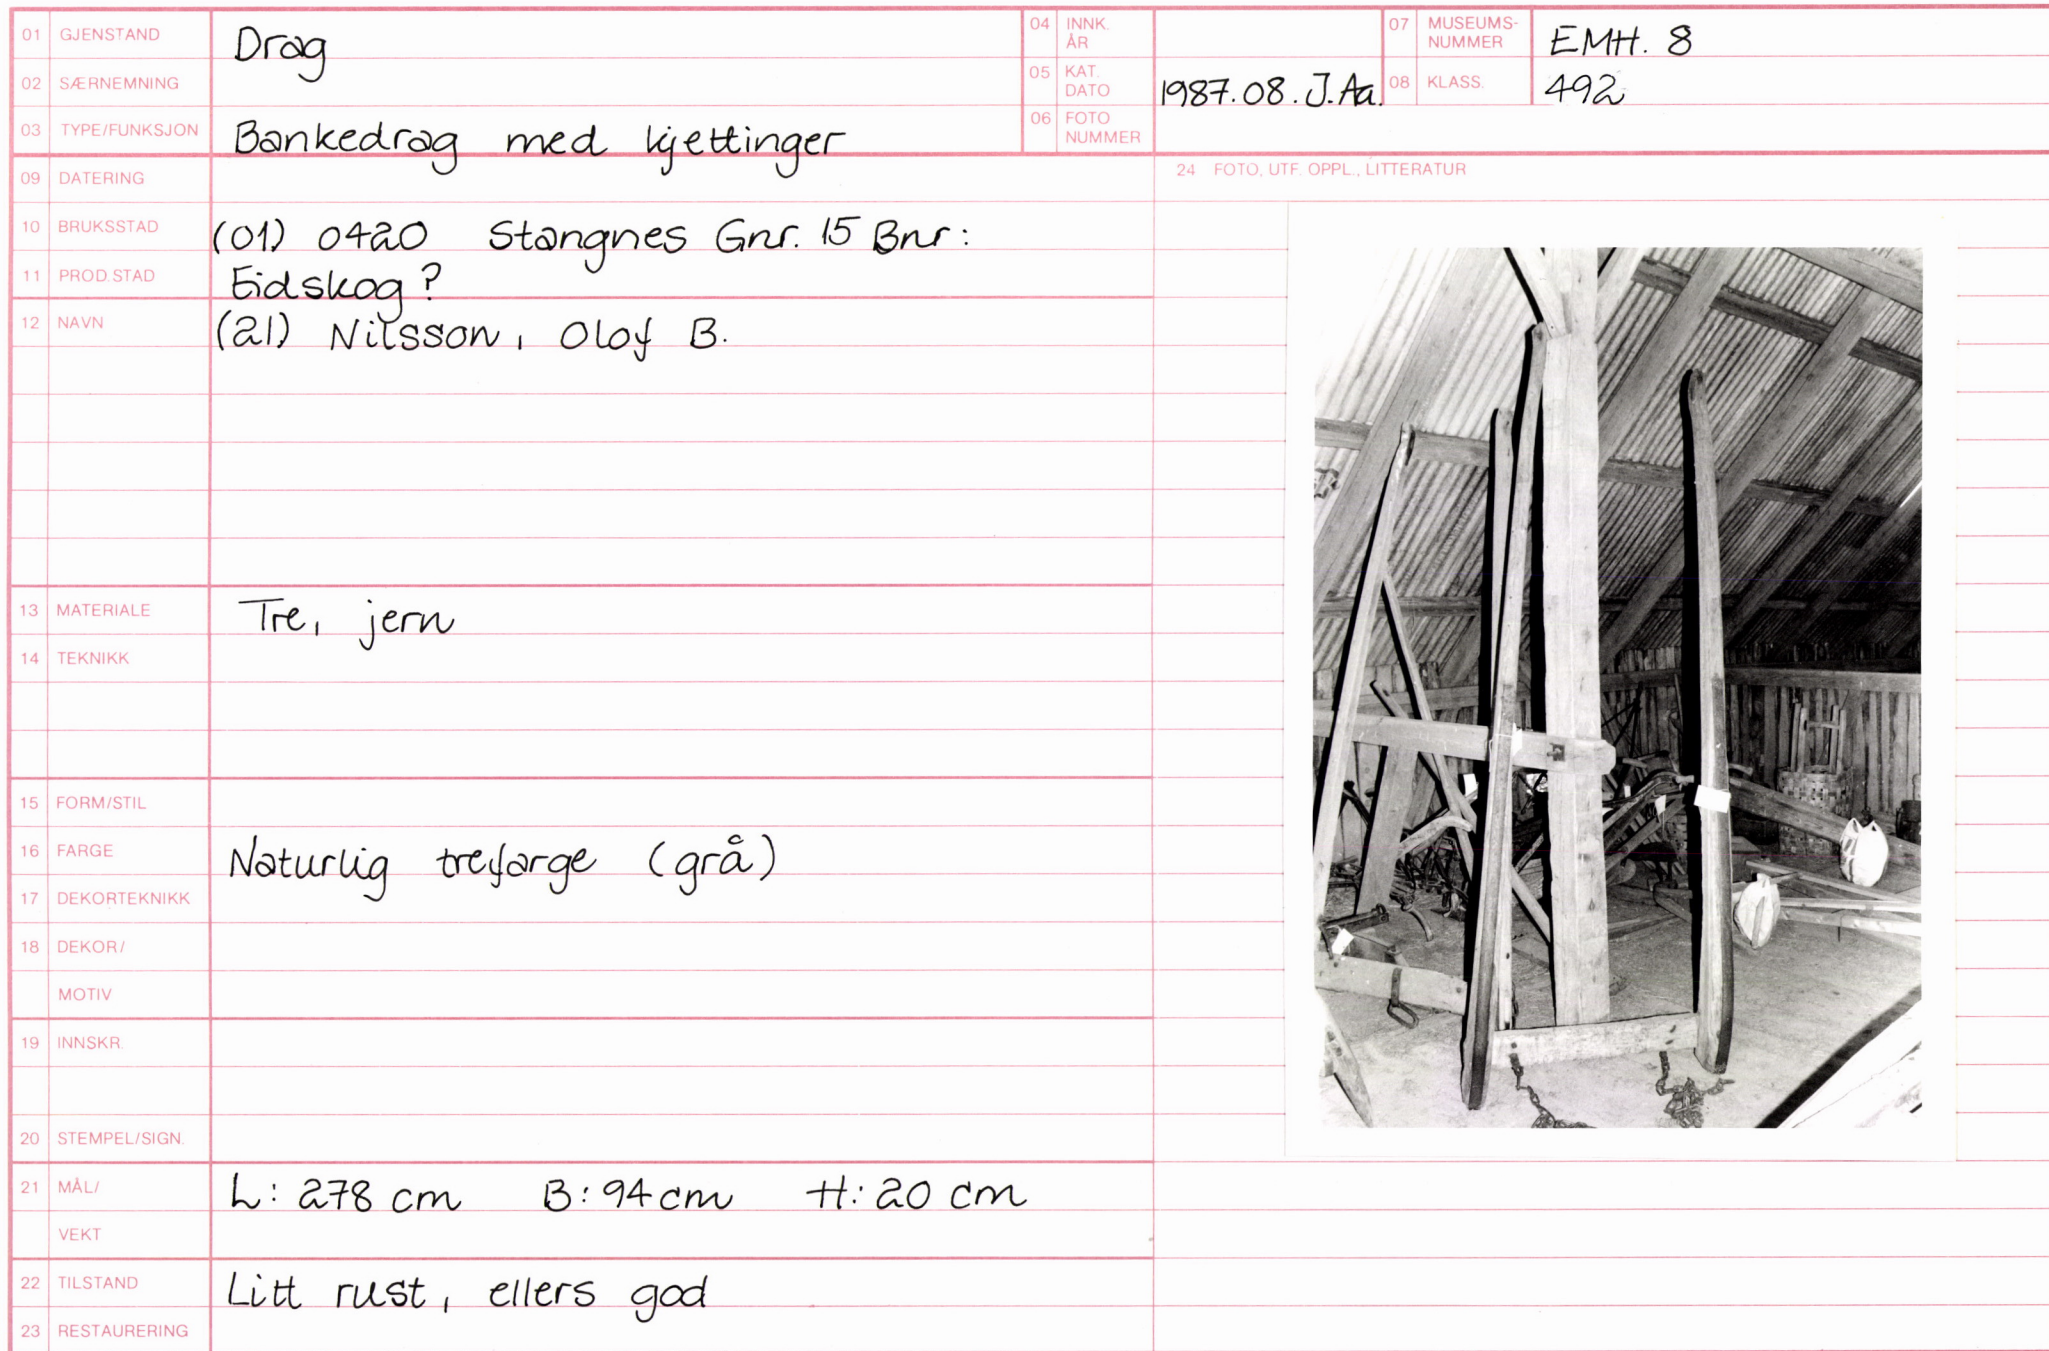 01 GJENSTAND Drag
02 SÆRNEMNING
03 TYPE/FUNKSJON Bankedrag med kjettinger
04 INNK. ÅR
05 KAT. DATO 1987.08. J.Aa.
06 FOTO NUMMER
07 MUSEUMS-NUMMER EMH. 8
08 KLASS. 492
09 DATERING
10 BRUKSSTAD (01) 0420 Stangnes Gnr. 15 Bnr:
11 PROD.STAD Eidskog?
12 NAVN (21) Nilsson, Olof B.
13 MATERIALE Tre, jern
14 TEKNIKK
15 FORM/STIL
16 FARGE Naturlig trefarge (grå)
17 DEKORTEKNIKK
18 DEKOR/
MOTIV
19 INNSKR.
20 STEMPEL/SIGN.
21 MÅL/ L: 278 cm B: 94 cm H: 20 cm
VEKT
22 TILSTAND Litt rust, ellers god
23 RESTAURERING
24 FOTO, UTF. OPPL., LITTERATUR